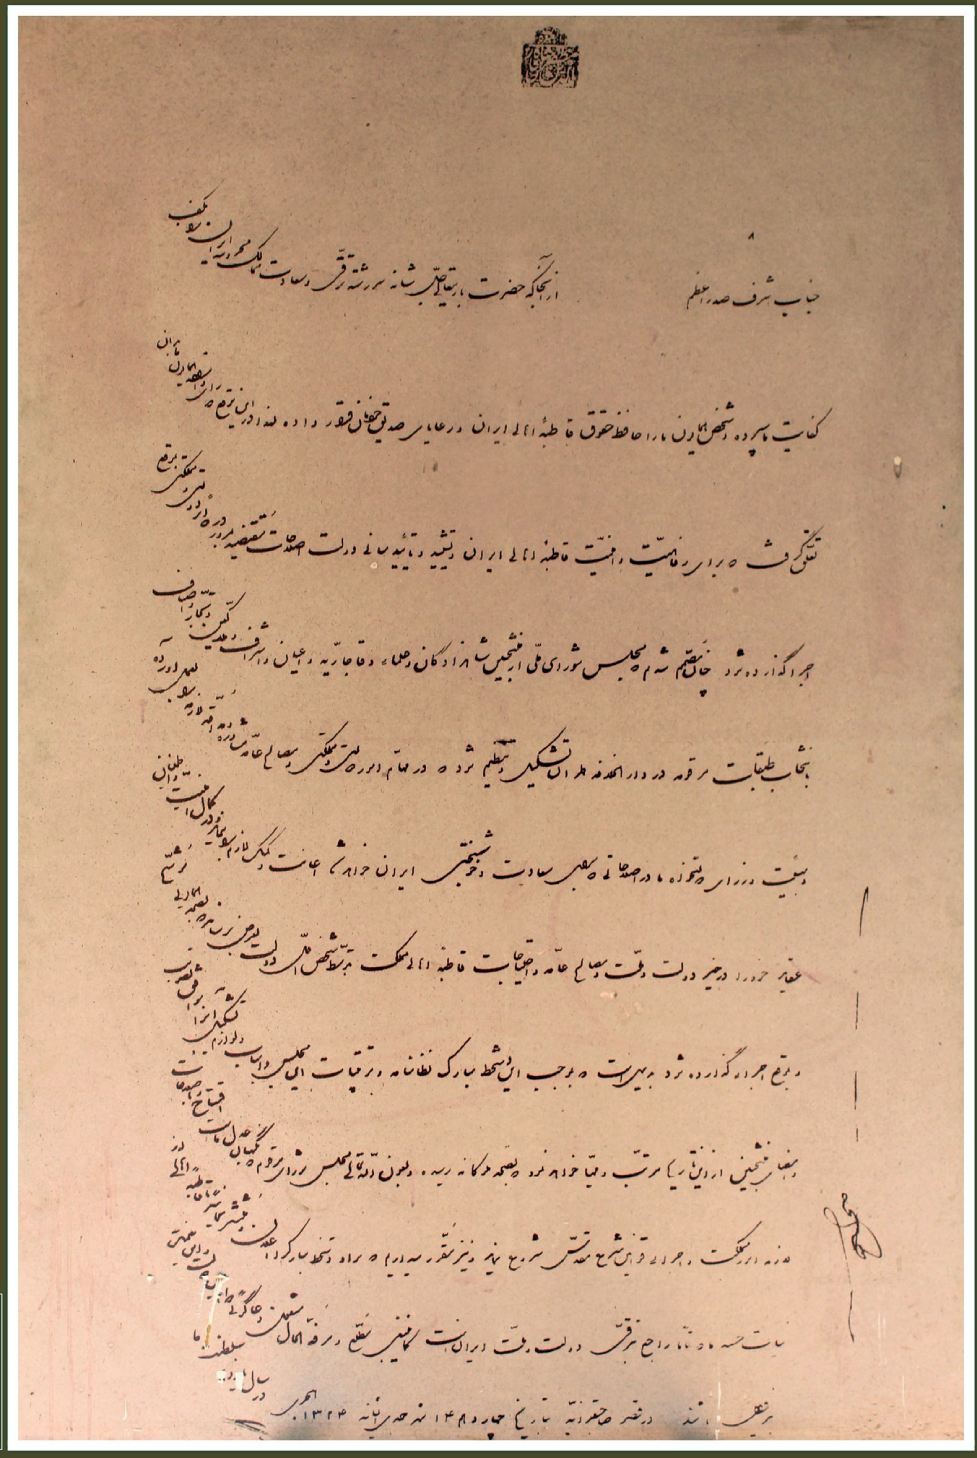 جناب اشرف صدراعظم از آنجا که حضرت باریتعالی جل شأنه سررشته ترقی و سعادت ممالک محروسه ایران را بکف
کفایت ما سپرده و شخص همایون ما را حافظ حقوق قاطبه اهالی ایران و رعایای صدیق خودمان قرار داده لهذا در این موقع که رأی و اراده همایون ما بدان
تعلق گرفت که برای رفاهیت و امنیت قاطبه اهالی ایران و تشیید و تأیید مبانی دولت اصلاحات مقتضیه بمرور در دوائر دولتی و مملکتی بموقع
اجرا گذارده شود چنان مصمم شدیم که مجلس شورای ملی از منتخبین شاهزادگان و علماء و قاجاریه و اعیان و اشراف و ملاکین و تجار و اصناف
بانتخاب طبقات مرقومه در دارالخلافه طهران تشکیل و تنظیم شود که در مهام امور دولتی و مملکتی و مصالح عامه مشاوره و مداقه لازمه را بعمل آورده
و بهیئت وزرای دولتخواه ما در اصلاحاتی که برای سعادت و خوشبختی ایران خواهد شد اعانت و کمک لازم را بنماید و در کمال امنیت و اطمینان
عقاید خود را در خیر دولت و ملت و مصالح عامه و احتیاجات قاطبه اهالی مملکت بتوسط شخص اول دولت بعرض برساند که بصحه همایونی موشح
و بموقع اجرا گذارده شود بدیهی است که بموجب این دستخط مبارک نظامنامه و ترتیبات این مجلس و اسباب و لوازم تشکیل آن را موافق تصویب
و امضای منتخبین از این تاریخ مرتب و مهیا خواهد نمود که بصحه ملوکانه رسیده و بعون الله تعالی مجلس شورای مرقوم که نگهبان عدل ماست افتتاح و باصلاحات
لازمه امور مملکت و اجرای قوانین شرع مقدس شروع نماید و نیز مقرر میداریم که سواد دستخط مبارک را اعلان و منتشر نمایید تا قاطبه اهالی از
نیات حسنه ما که تماماً راجع بترقی دولت و ملت ایران است کماینبغی مطلع و مرفه الحال مشغول دعاگوئی دوام این دولت و این نعمت
بی‌زوال باشند در قصر صاحبقرانیه بتاریخ چهاردهم شهر جمادی الثانیه ۱۳۲۴ هجری در سال یازدهم سلطنت ما